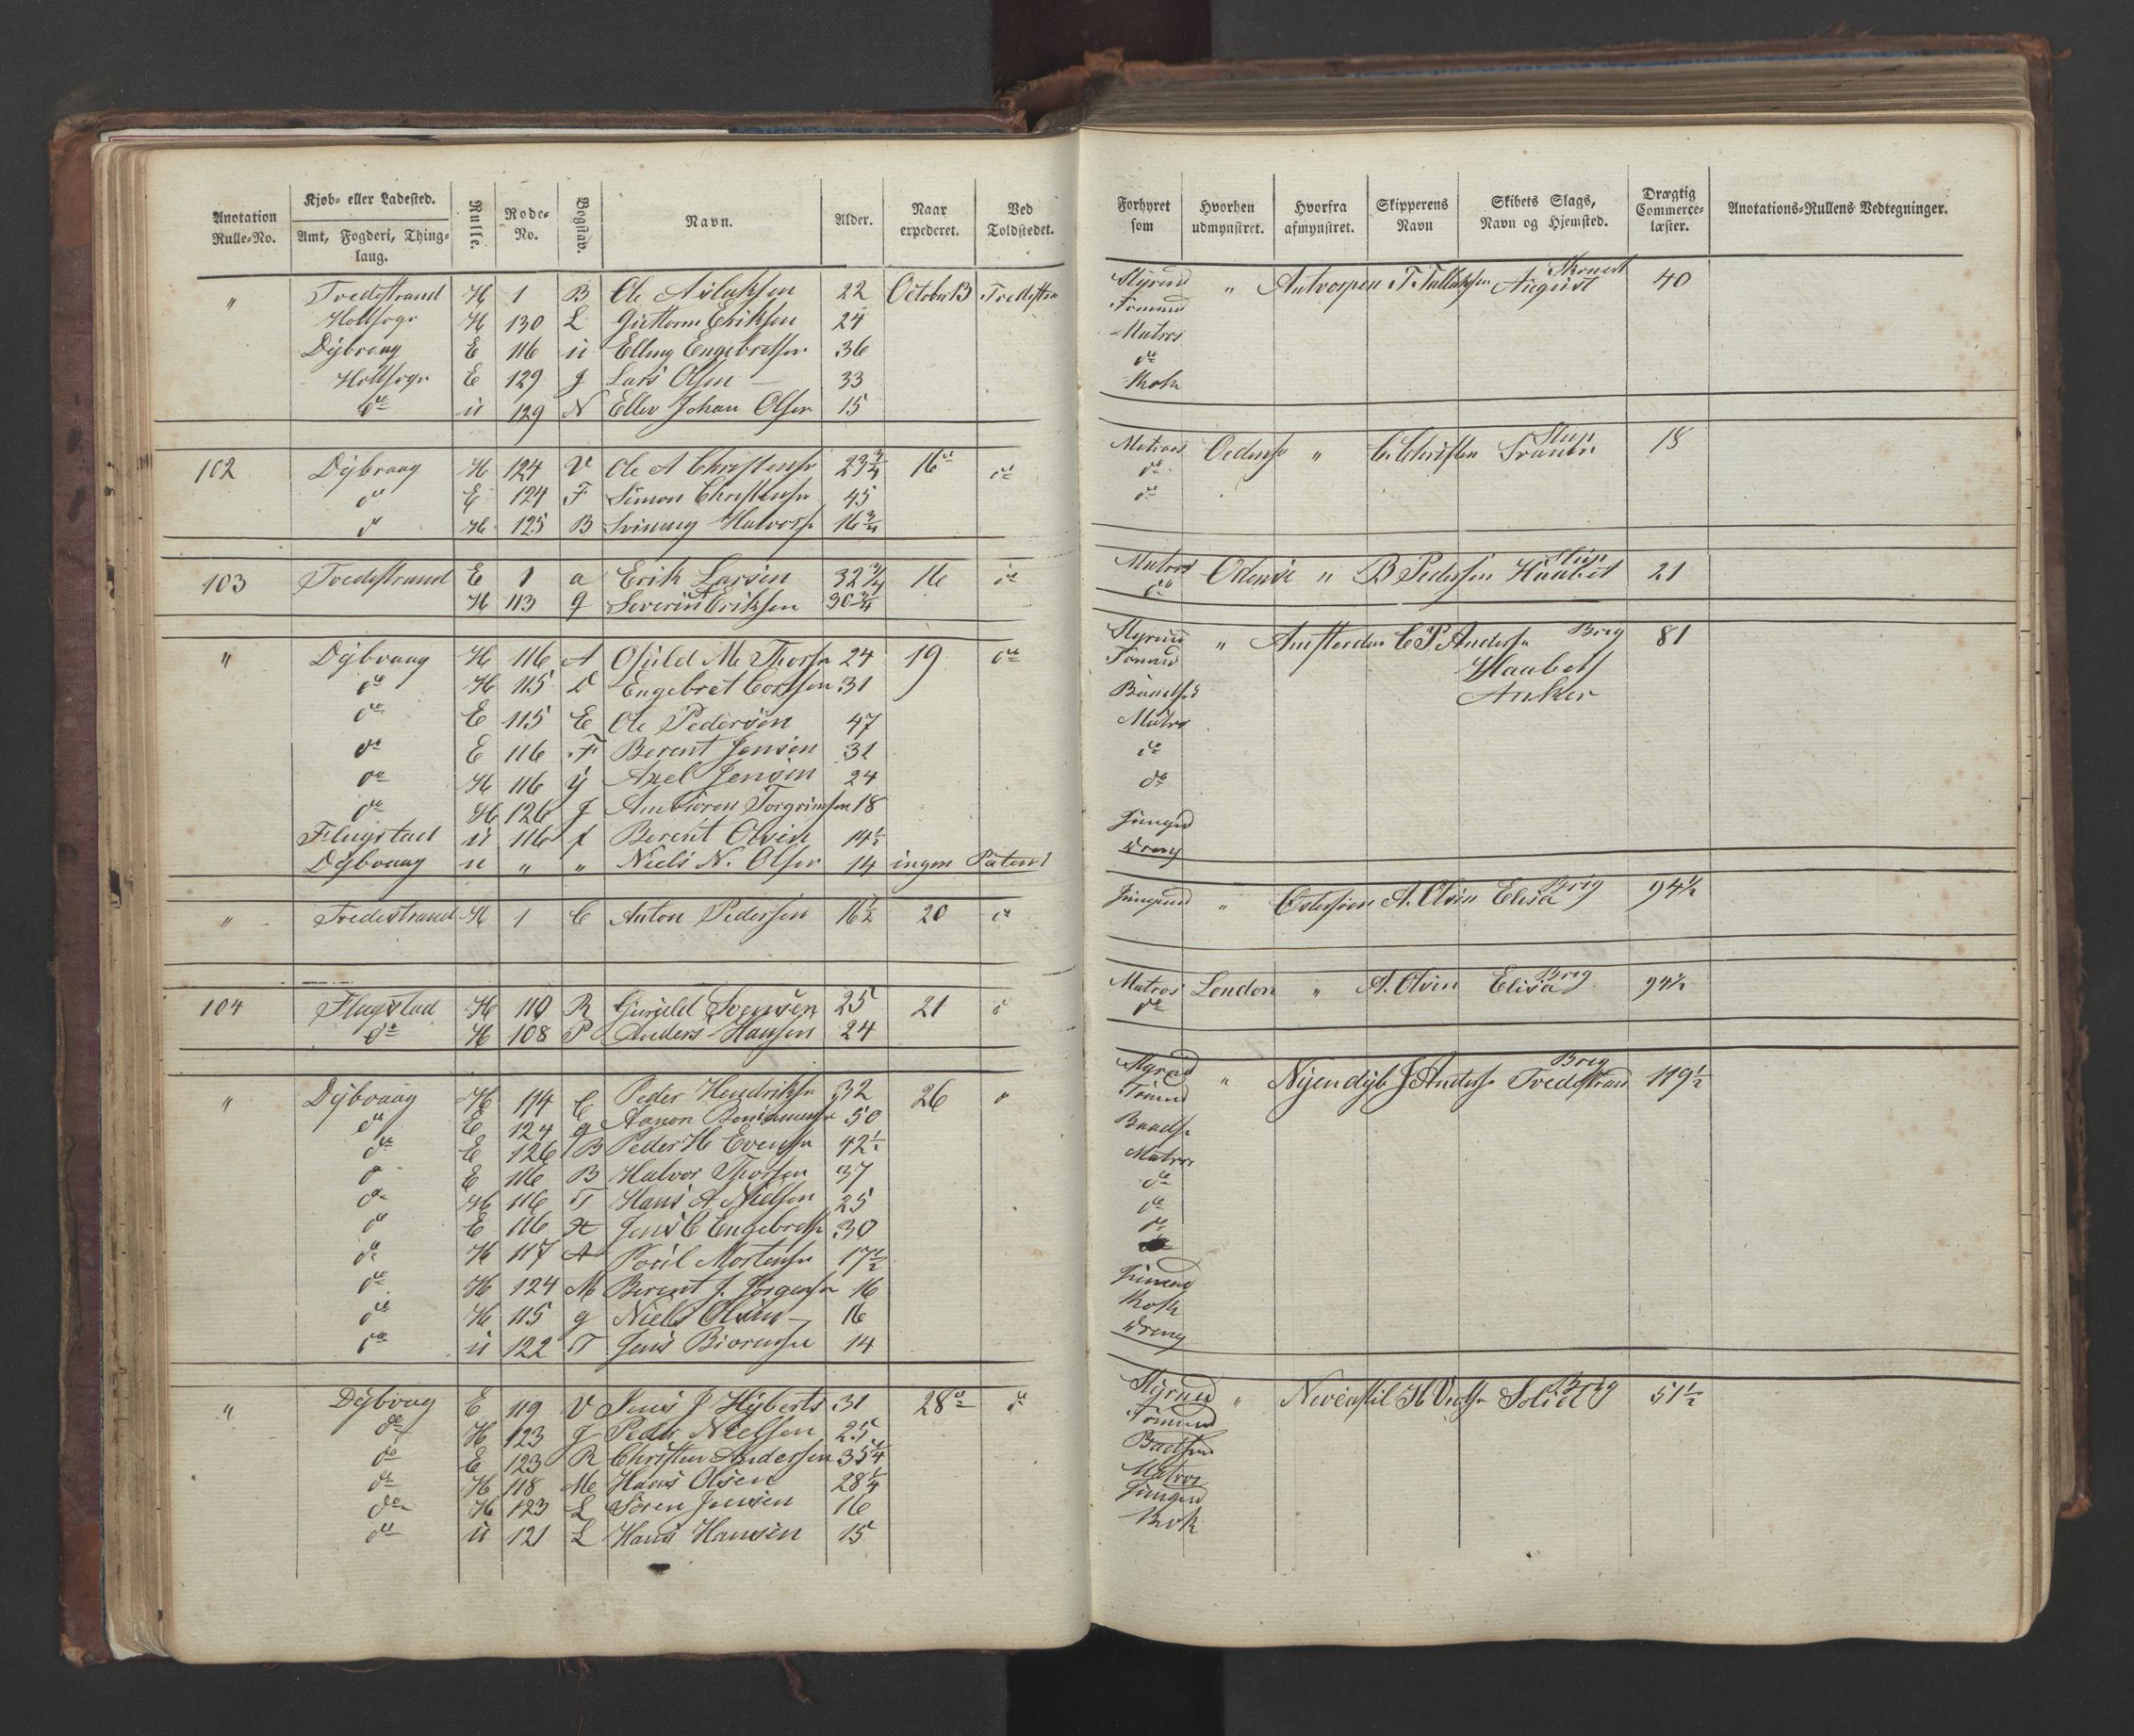 Anotation Rulle-No. Kjøb- eller Ladested. Amt, Fogderi, Thing-laug. Rulle. Rode-No. Bogstav. Navn. Alder. Naar expederet. Ved Toldstedet.
" Tvedestrand H 1 B Ole Aslaksen 22 October 13 Tvedestra
Holtsogn H 130 L Guttorm Eriksen 24
Dÿbvaag E 116 ü Elling Engebretsen 36
Holtsogn E 129 J Lars Olsen 33
do ü 129 N Ellev Johan Olsen 15
102 Dÿbvaag H 124 V Ole A Christensen 23 3/4 16de do
do E 124 F Simon Christensen 45
do H 125 B Halvors 16 3/4
103 Tvedestrand E 1 a Erik Larsen 32 3/4 16 do
H 113 g Severin Eriksen 30 3/4
" Dÿbvaag H 116 A Osüld M. Thorsen 24 19 do
do H 115 D Engebret 31
do E 115 E Ole Pedersen 47
do E 116 F Berent Jensen 31
do H 116 ÿ Axel Jensen 24
do H 126 J Torgrimsen 18
Flagstad ü 116 f Berent Olsen 14 1/2
Dÿbvaag ü " " Niels N. Olsen 14 ingen Patent
" Tvedestrand H 1 C Anton Pedersen 16 1/2 20 do
104 Flagstad H 110 R Svensen 25 21 do
do H 108 P Anders Hansen 24
" Dÿbvaag H 114 C Peder Hendriksen 32 26 "
do E 124 g Aanon 50
do E 126 B Peder H Evensen 42 1/2
do E 116 B Halvor Thorsen 37
do H 116 T Hans A Nielsen 25
do E 116 H Jens C Engebretsen 30
do H 117 A Poül Mortensen 17 1/2
do H 124 M Berent J. Jörgensen 16
do H 115 g Niels Olsen 16
do ü 122 T Jens Biörensen 14
" Dÿbvag E 119 V Jens J Hÿberts 31 28de do
do H 123 J Peder Nielsen 25
do E 123 R Christen Andersen 35 1/4
do H 118 M Hans Olsen 28 1/4
do H 123 L Sören Jensen 16
do ü 121 L Hans Hansen 15
Forhyret som Hvorhen udmynstret. Hvorfra afmynstret. Skipperens Navn Skibets Slags, Navn og Hjemsted. Drægtig Commerce-læster. Anotations-Rullens Vedtegninger.
Stÿrmd " Antverpen T. Tallaksen August 40
Tömmd
Matros
do
Kok
Matros Oedense " C. Christen Slup 18
do
do
Matros Odense " B Pedersen Slup Haabet 21
do
Stÿrmd " Amsterdam C P Andersen Brig 81
Tömmd Haabets
Baadsd Anker
Matros
do
do
Jüngmd
Dreng
Jüngmd " Östersöen A. Olsen Brig Elisa 94 1/2
Matros London " A. Olsen Brig Elisa 94 1/2
do
Stÿrmd " Nÿendÿb J Anders Brig Tvedestrand 119 1/2
Tömmd
Baadsm
Matros
do
do
do
Jüngmd
Kok
Dreng
Stÿrmd " Brig Solid 51 1/2
Tömmd
Baadsm
Matros
Jüngmd
Kok